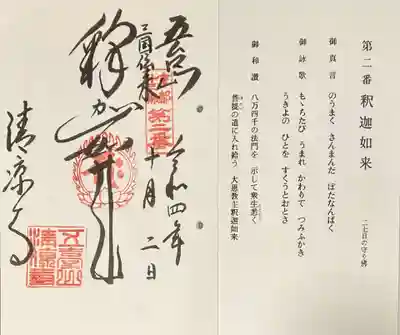 第二番 釈迦如来
二七日の守り佛
御真言 のうまく さんまんだ ぼだなんばく
御詠歌 もゝちたび うまれ かわりて つみふかき
うきよの ひとを すくうとおとさ
御和讃 八万四千の法門を 示して衆生悉く
菩提の道に入れ給う 大恩教主釈迦如来
令和四年
十月二日
第二番
五台山
三国伝来
清凉寺
五臺山
清凉寺